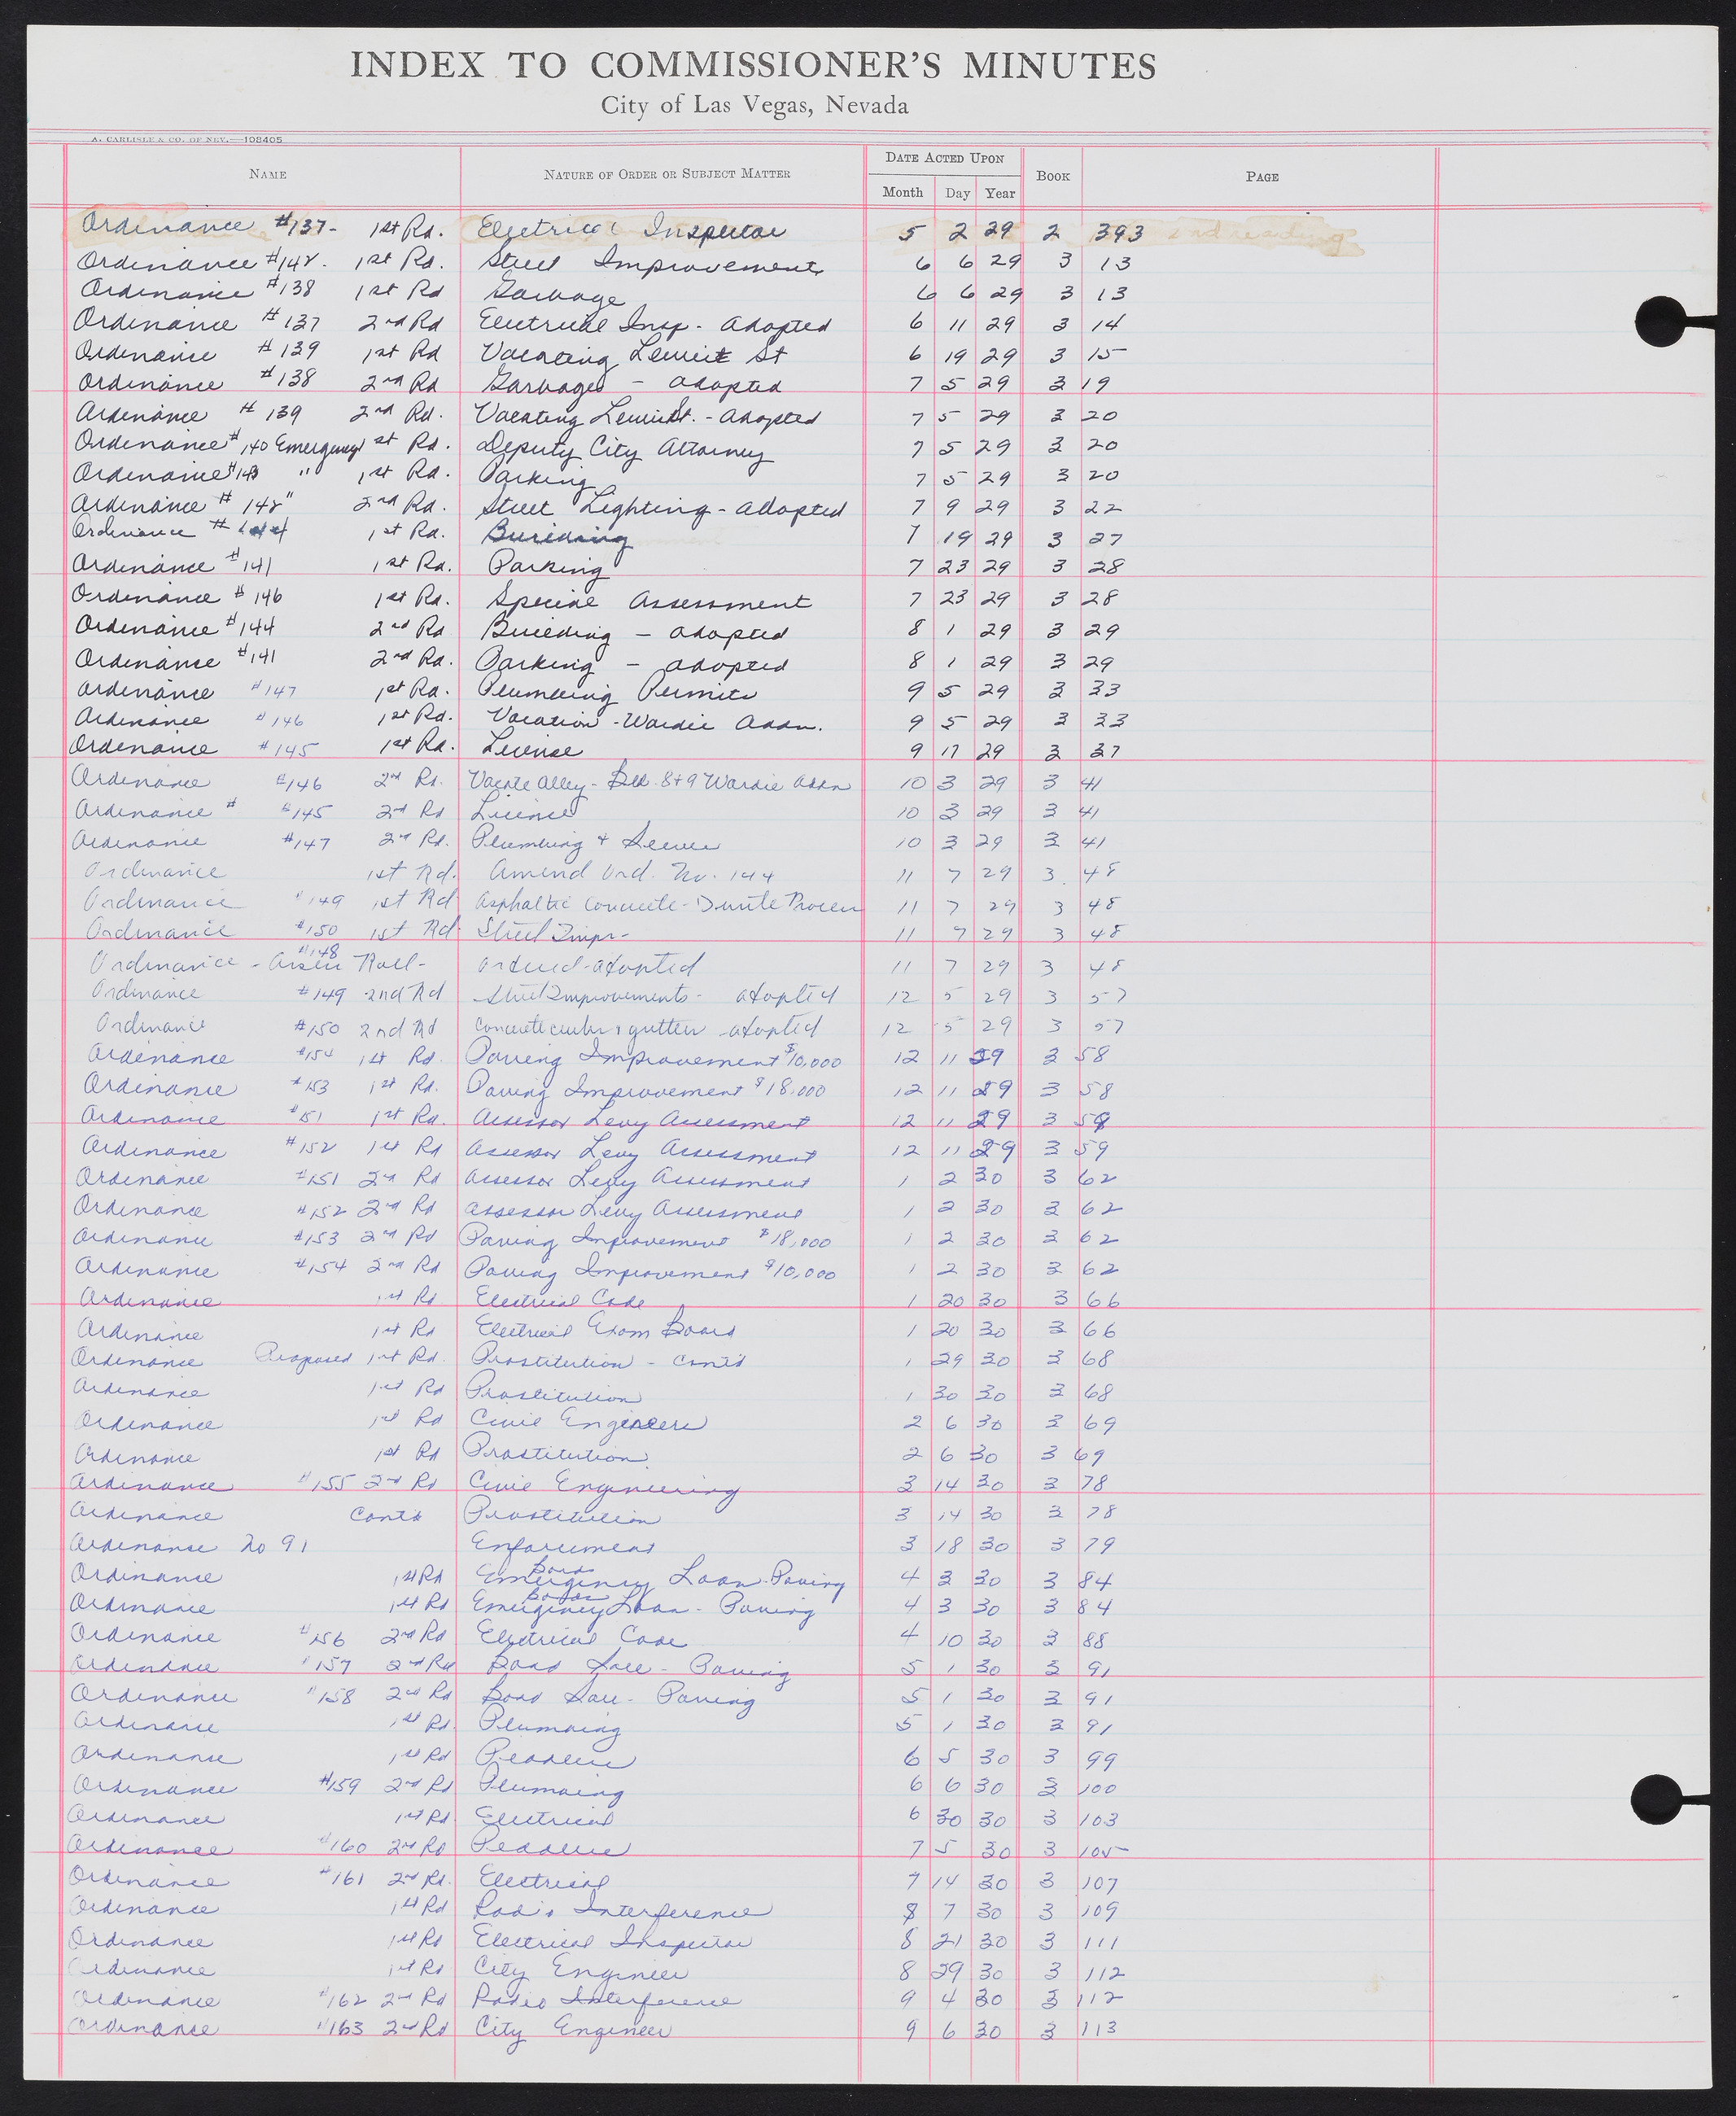 INDEX TO COMMISSIONER'S MINUTES
City of Las Vegas, Nevada
A. CARLISLE & CO. OF NEV.—108405
DATE ACTED UPON
NAME NATURE OF ORDER OR SUBJECT MATTER Month Day Year BOOK PAGE
Ordinance #137- 1st Rd. Electrical Inspector 5 2 29 2 393 2nd reading
Ordinance #148- 1st Rd. Street Improvement 6 6 29 3 13
Ordinance #138 1st Rd Garbage 6 6 29 3 13
Ordinance #137 2nd Rd Electrical Insp - adopted 6 11 29 3 14
Ordinance #139 1st Rd Vacating Lewis St 6 19 29 3 15
Ordinance #138 2nd Rd Garbage - adopted 7 5 29 3 19
Ordinance #139 2nd Rd. Vacating Lewis St. - adopted 7 5 29 3 20
Ordinance #140 Emergency 1st Rd. Deputy City Attorney 7 5 29 3 20
Ordinance #143 " 1st Rd. Parking 7 5 29 3 20
Ordinance #148 " 2nd Rd. Street Lighting - adopted 7 9 29 3 22
Ordinance #144 1st Rd. Building 7 19 29 3 27
Ordinance #141 1st Rd. Parking 7 23 29 3 28
Ordinance #146 1st Rd. Special Assessment 7 23 29 3 28
Ordinance #144 2nd Rd Building - adopted 8 1 29 3 29
Ordinance #141 2nd Rd. Parking - adopted 8 1 29 3 29
Ordinance #147 1st Rd. Plumbing Permits 9 5 29 3 33
Ordinance #146 1st Rd. Vacation - Wardie Addn. 9 5 29 3 33
Ordinance #145 1st Rd. License 9 17 29 3 37
Ordinance #146 2nd Rd. Vacate Alley - Blk. 8+9 Wardie Addn 10 3 29 3 41
Ordinance # #145 2nd Rd License 10 3 29 3 41
Ordinance #147 2nd Rd. Plumbing & Sewer 10 3 29 3 41
Ordinance 1st Rd. Amend Ord. No. 144 11 7 29 3. 48
Ordinance #149 1st Rd Asphaltic Concrete - Durite Process 11 7 29 3 48
Ordinance #150 1st Rd. Street Impr- 11 7 29 3 48
Ordinance - #148 Assess Roll - ordered - adopted 11 7 29 3 48
Ordinance #149 2nd Rd Street Improvements - adopted 12 5 29 3 57
Ordinance #150 2nd Rd Concrete curbs & gutters adopted 12 5 29 3 57
Ordinance #154 1st Rd. Paving Improvement $10,000 12 11 29 3 58
Ordinance #153 1st Rd. Paving Improvement $18,000 12 11 29 3 58
Ordinance #151 1st Rd. Assessor Levy Assessment 12 11 29 3 59
Ordinance #152 1st Rd Assessor Levy Assessment 12 11 29 3 59
Ordinance #151 2nd Rd Assessor Levy Assessment 1 2 30 3 62
Ordinance #152 2nd Rd Assessor Levy Assessment 1 2 30 3 62
Ordinance #153 2nd Rd Paving Improvement $18,000 1 2 30 3 62
Ordinance #154 2nd Rd Paving Improvement $10,000 1 2 30 3 62
Ordinance 1st Rd Electrical Code 1 20 30 3 66
Ordinance 1st Rd Electrical Exam Board 1 20 30 3 66
Ordinance Proposed 1st Rd. Prostitution - Cont'd 1 29 30 3 68
Ordinance 1st Rd Prostitution 1 30 30 3 68
Ordinance 1st Rd Civil Engineers 2 6 30 3 69
Ordinance 1st Rd Prostitution 2 6 30 3 69
Ordinance #155 2nd Rd Civil Engineering 3 14 30 3 78
Ordinance Contd Prostitution 3 14 30 3 78
Ordinance No 91 Enforcement 3 18 30 3 79
Ordinance 1st Rd Emergency Bond Loan - Paving 4 3 30 3 84
Ordinance 1st Rd Emergency Bonds Loan - Paving 4 3 30 3 84
Ordinance #156 2nd Rd Electrical Code 4 10 30 3 88
Ordinance #157 2nd Rd Bond Sale - Paving 5 1 30 3 91
Ordinance #158 2nd Rd Bond Sale - Paving 5 1 30 3 91
Ordinance 1st Rd. Plumbing 5 1 30 3 91
Ordinance 1st Rd Peddlers 6 5 30 3 99
Ordinance #159 2nd Rd Plumbing 6 6 30 3 100
Ordinance 1st Rd. Electrical 6 30 30 3 103
Ordinance #160 2nd Rd Peddlers 7 5 30 3 105
Ordinance #161 2nd Rd. Electrical 7 14 30 3 107
Ordinance 1st Rd Radio Interference 8 7 30 3 109
Ordinance 1st Rd Electrical Inspector 8 21 30 3 111
Ordinance 1st Rd City Engineer 8 29 30 3 112
Ordinance #162 2nd Rd Radio Interference 9 4 30 3 112
Ordinance #163 2nd Rd City Engineer 9 6 30 3 113